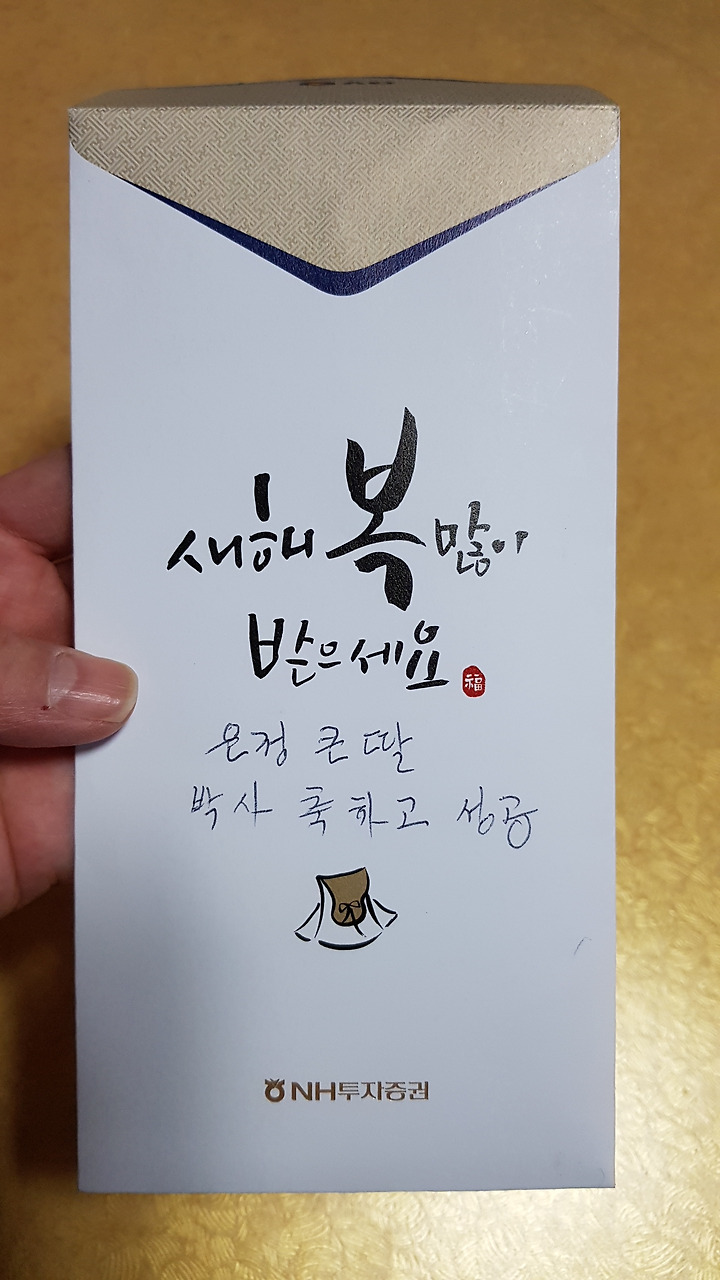 새해 복 많이
받으세요
福
은정 큰딸
박사 축하고 성공
NH투자증권